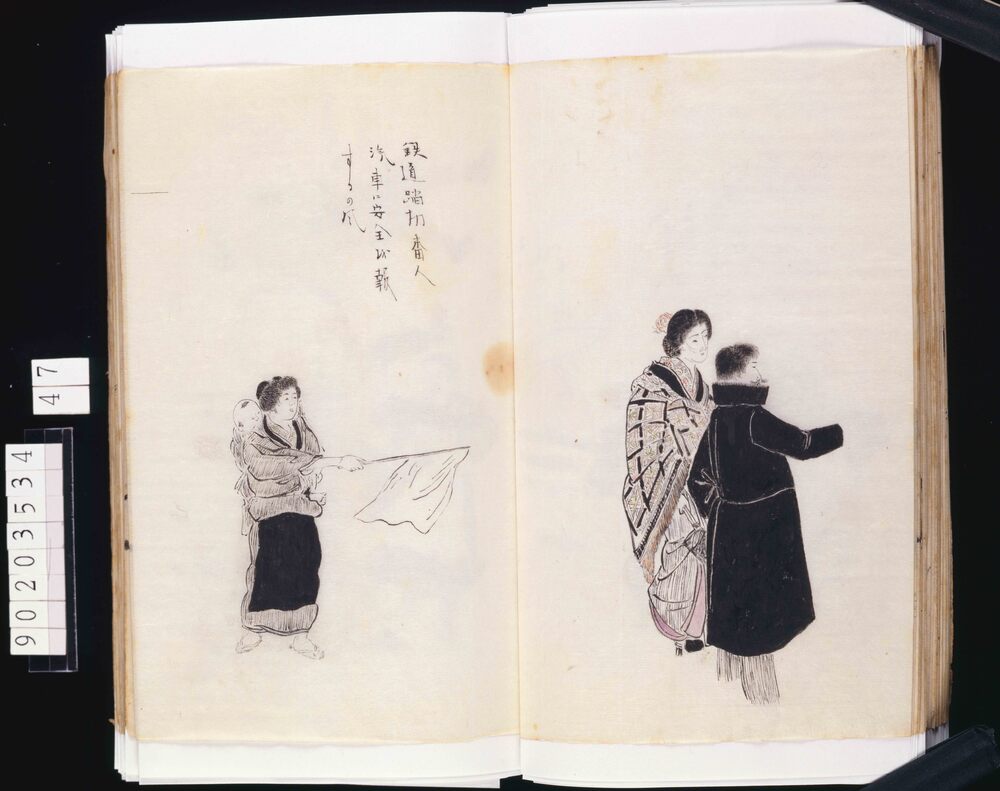 鉄道踏切番人
汽車に安全を報
するの風
47
90203534